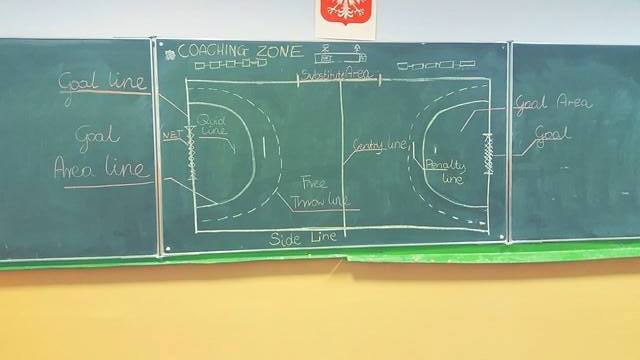 COACHING ZONE
Substitute Area
Goal line
Goal
Area line
NET
Line
Free
Throw line
Centry line
Penalty
line
Goal Area
Goal
Side Line